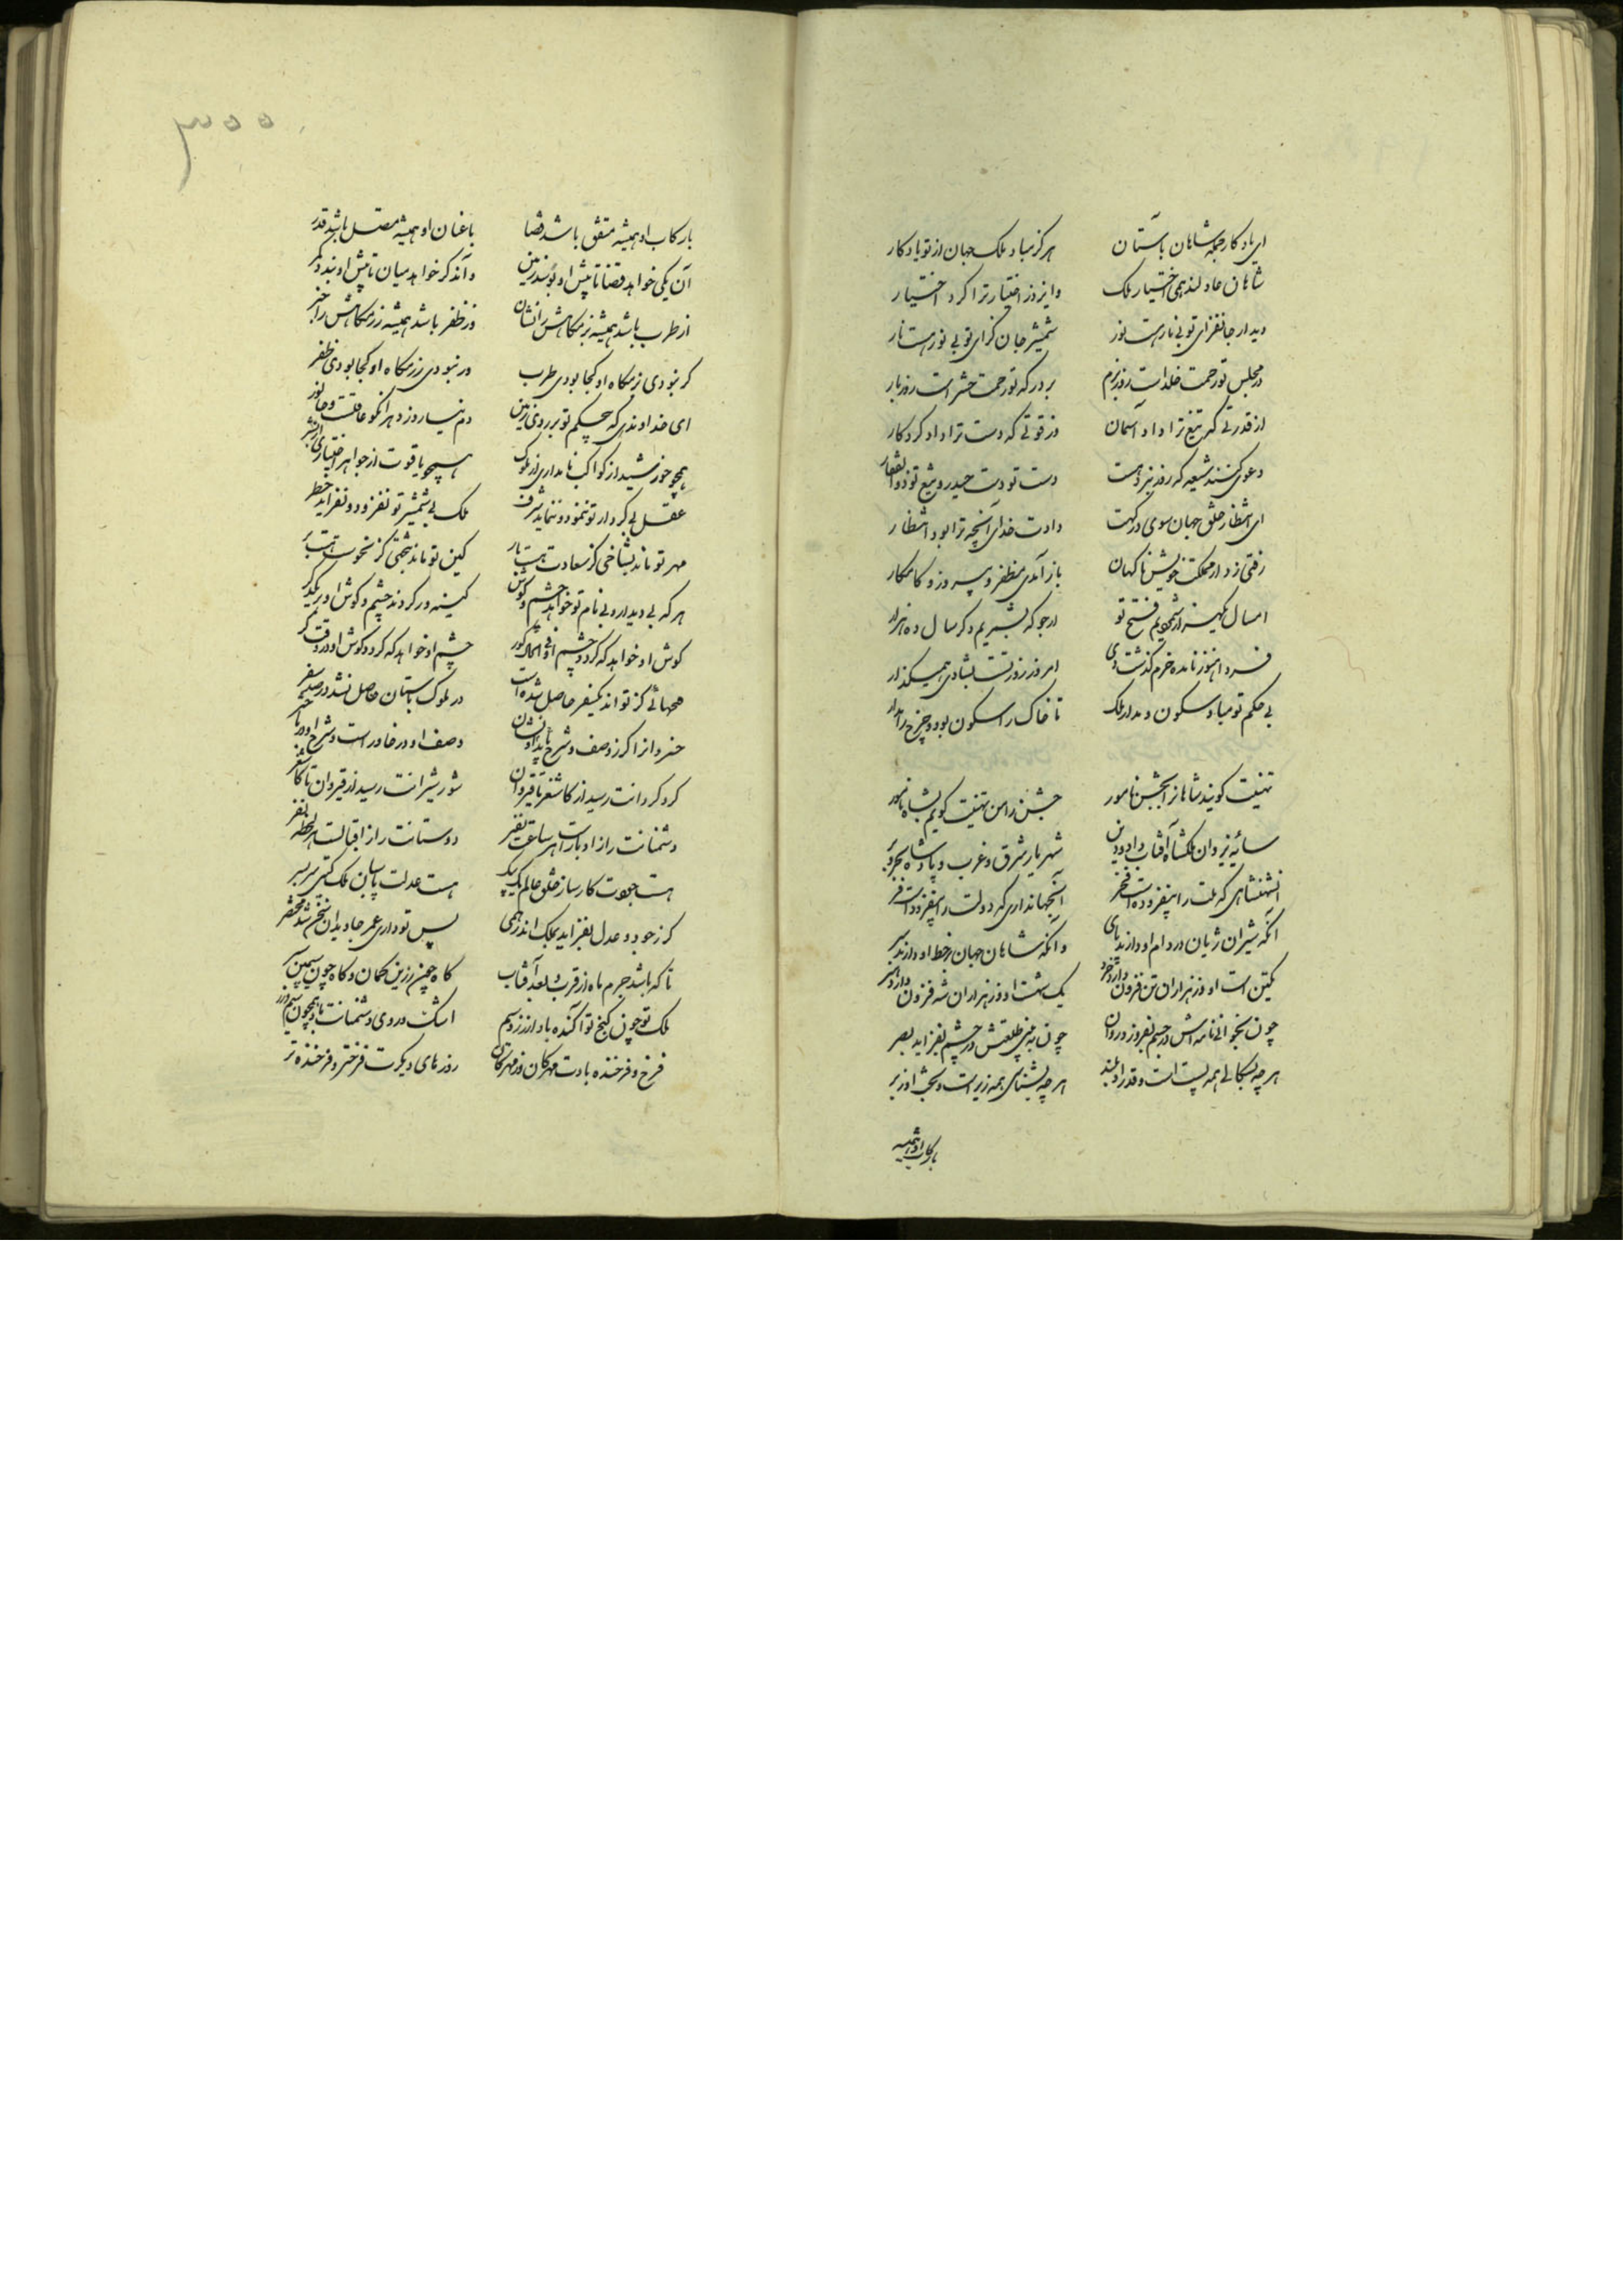 ای یادکار جمله شاهان باستان هرگز مباد ملک جهان از تو یادکار
شاهان عادلند همی اختیار ملک وایزد ز اختیار ترا کرد اختیار
دیدار جانفزای تو بی نارهست نور شمشیر جان گزای تو بی نورهست نار
در مجلس تو رحمت خلداست روز بزم بر درکه تو زحمت حشراست روز بار
از قدرتی که تیغ ترا داد آسمان وز قوتی که دست ترا داد کردکار
دعوی کنند شیعه که روز نبرد هست دست تو دست حیدر و تیغ تو ذوالفقار
ای انتظار خلق جهان سوی درکهت دادت خدای آنچه ترا بود انتظار
رفتی ز دار مملکت خویش ناکهان باز آمدی مظفر و پیروز و کامکار
امسال یکهزار شمردیم فتح تو ارجو که بشمریم دکر سال ده هزار
فردا هنوز نامده خرم گذشت دی امروز روز تست بشادی همی گذار
بی حکم تو مباد سکون و مدار ملک تا خاک را سکون بود و چرخ را مدار
تهنیت کویند شاهانرا بجشن نامور جشن را من تهنیت کویم بشاه نامور
سایه یزدان ملکشاه آفتاب داد و دین شهریار شرق و غرب و پادشاه بحر و بر
آن شهنشاهی که ملت را بیفزوده است فخر آن جهانداری که دولت را بیفزوده است فر
آنکه شیران ژیان در دام او دارند پای وآنکه شاهان جهان بر خط او دارند سر
یکتن است او وز هزاران تن فزون دارد خرد یک شه است او وز هزاران شه فزون دارد هنر
چون بخوانی نامه اش در جسم بفروزد روان چون ببینی طلعتش در چشم بفزاید بصر
هر چه بسکالی همه پست است و قدر او بلند هر چه بشناسی همه زیر است و بخت او زبر
با رکاب او همیشه
۳۰۰
با رکاب او همیشه متفق باشد قضا با عنان او همیشه متصل باشد قدر
آن یکی خواهد قضا تا پیش او بوسد زمین وآن دکر خواهد میان تا پیش او بندد کمر
از طرب باشد همیشه بزمکاهش را نشان وز ظفر باشد همیشه رزمکاهش را خبر
کر نبودی بزمکاه او کجا بودی طرب ور نبودی رزمکاه او کجا بودی ظفر
ای خداوندی که بی حکم تو بر روی زمین دم نیارد زد هر آنکو عاقلست و جانور
همچو خورشید از کواکب نامداری از ملوک همچو یاقوت از جواهر اختیاری از بشر
عقل بی کردار تو ننمود و ننماید شرف ملک بی شمشیر تو نفزود و نفزاید خطر
مهر تو ماند بشاخی کز سعادت هست بار کین تو ماند بتخمی کز نحوست هست بر
هر که بی دیدار و بی نام تو خواهد چشم و گوش کینه ور کردند چشم و گوش او بر یکدکر
گوش او خواهد که کردد چشم او در حال کور چشم او خواهد که کردد گوش او در وقت کر
فتحهائی کز تو اندر یکسفر حاصل شده است در ملوک باستان حاصل نشد در صد سفر
خسروانرا کر ز وصف و شرح باید داد نشان وصف او در خاور است و شرح او در باختر
کرد کردانت رسید از کاشغر تا قیروان شور شیرانت رسید از قیروان تا کاشغر
دشمنانت را ز ادبارست هر ساعت نفیر دوستانت را ز اقبالست هر لحظه نفر
هست جودت کارساز خلق عالم یک بیک هست عدلت پاسبان ملک گیتی سربسر
کر ز جود و عدل بفزاید بملک اندر همی پس تو داری عمر جاویدان سخن شد مختصر
تا که باشد جرم ماه از قرب و بعد آفتاب کاه چون زرین کمان و کاه چون سیمین سپر
ملک تو چون کنج تو آکنده باد از زر و سیم اشک و روی دشمنانت باد همچون سیم و زر
فرخ و فرخنده بادت مهرکان وز مهرکان روزهای دیکرت فرختر و فرخنده تر